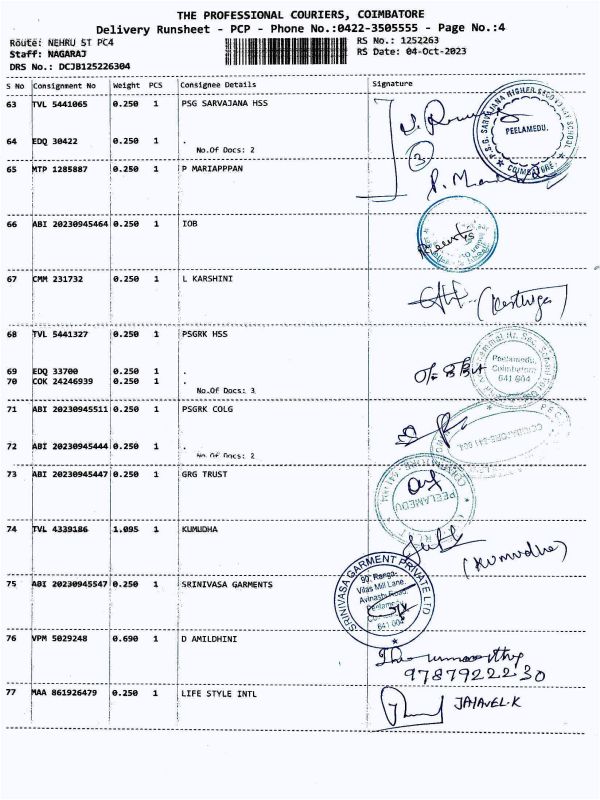 THE PROFESSIONAL COURIERS, COIMBATORE
Delivery Runsheet - PCP - Phone No.:0422-3505555 - Page No.:4
Route: NEHRU ST PC4 RS No.: 1252263
Staff: NAGARAJ RS Date: 04-Oct-2023
DRS No.: DCJB125226304
S No Consignment No Weight PCS Consignee Details Signature
63 TVL 5441065 0.250 1 PSG SARVAJANA HSS
P.S.G. SARVAJANA HIGHER SECONDARY SCHOOL
PEELAMEDU.
COIMBATORE
64 EDQ 30422 0.250 1 .
No.Of Docs: 2
3
65 MTP 1285887 0.250 1 P MARIAPPPAN
66 ABI 20230945464 0.250 1 IOB
67 CMM 231732 0.250 1 L KARSHINI
68 TVL 5441327 0.250 1 PSGRK HSS
Peelamedu,
Coimbatore
641 004
69 EDQ 33700 0.250 1 .
70 COK 24246939 0.250 1 .
No.Of Docs: 3
71 ABI 20230945511 0.250 1 PSGRK COLG
COIMBATORE-641 004
72 ABI 20230945444 0.250 1 .
No.Of Docs: 2
73 ABI 20230945447 0.250 1 GRG TRUST
PEELAMEDU
74 TVL 4339186 1.095 1 KUMUDHA
(Kumudha)
75 ABI 20230945547 0.250 1 SRINIVASA GARMENTS
SRINIVASA GARMENT PRIVATE LTD
90, Ranga
Vilas Mill Lane,
Avinashi Road
Peelamedu
641 004
76 VPM 5029248 0.690 1 D AMILDHINI
9787922230
77 MAA 861926479 0.250 1 LIFE STYLE INTL
JAYAVEL.K